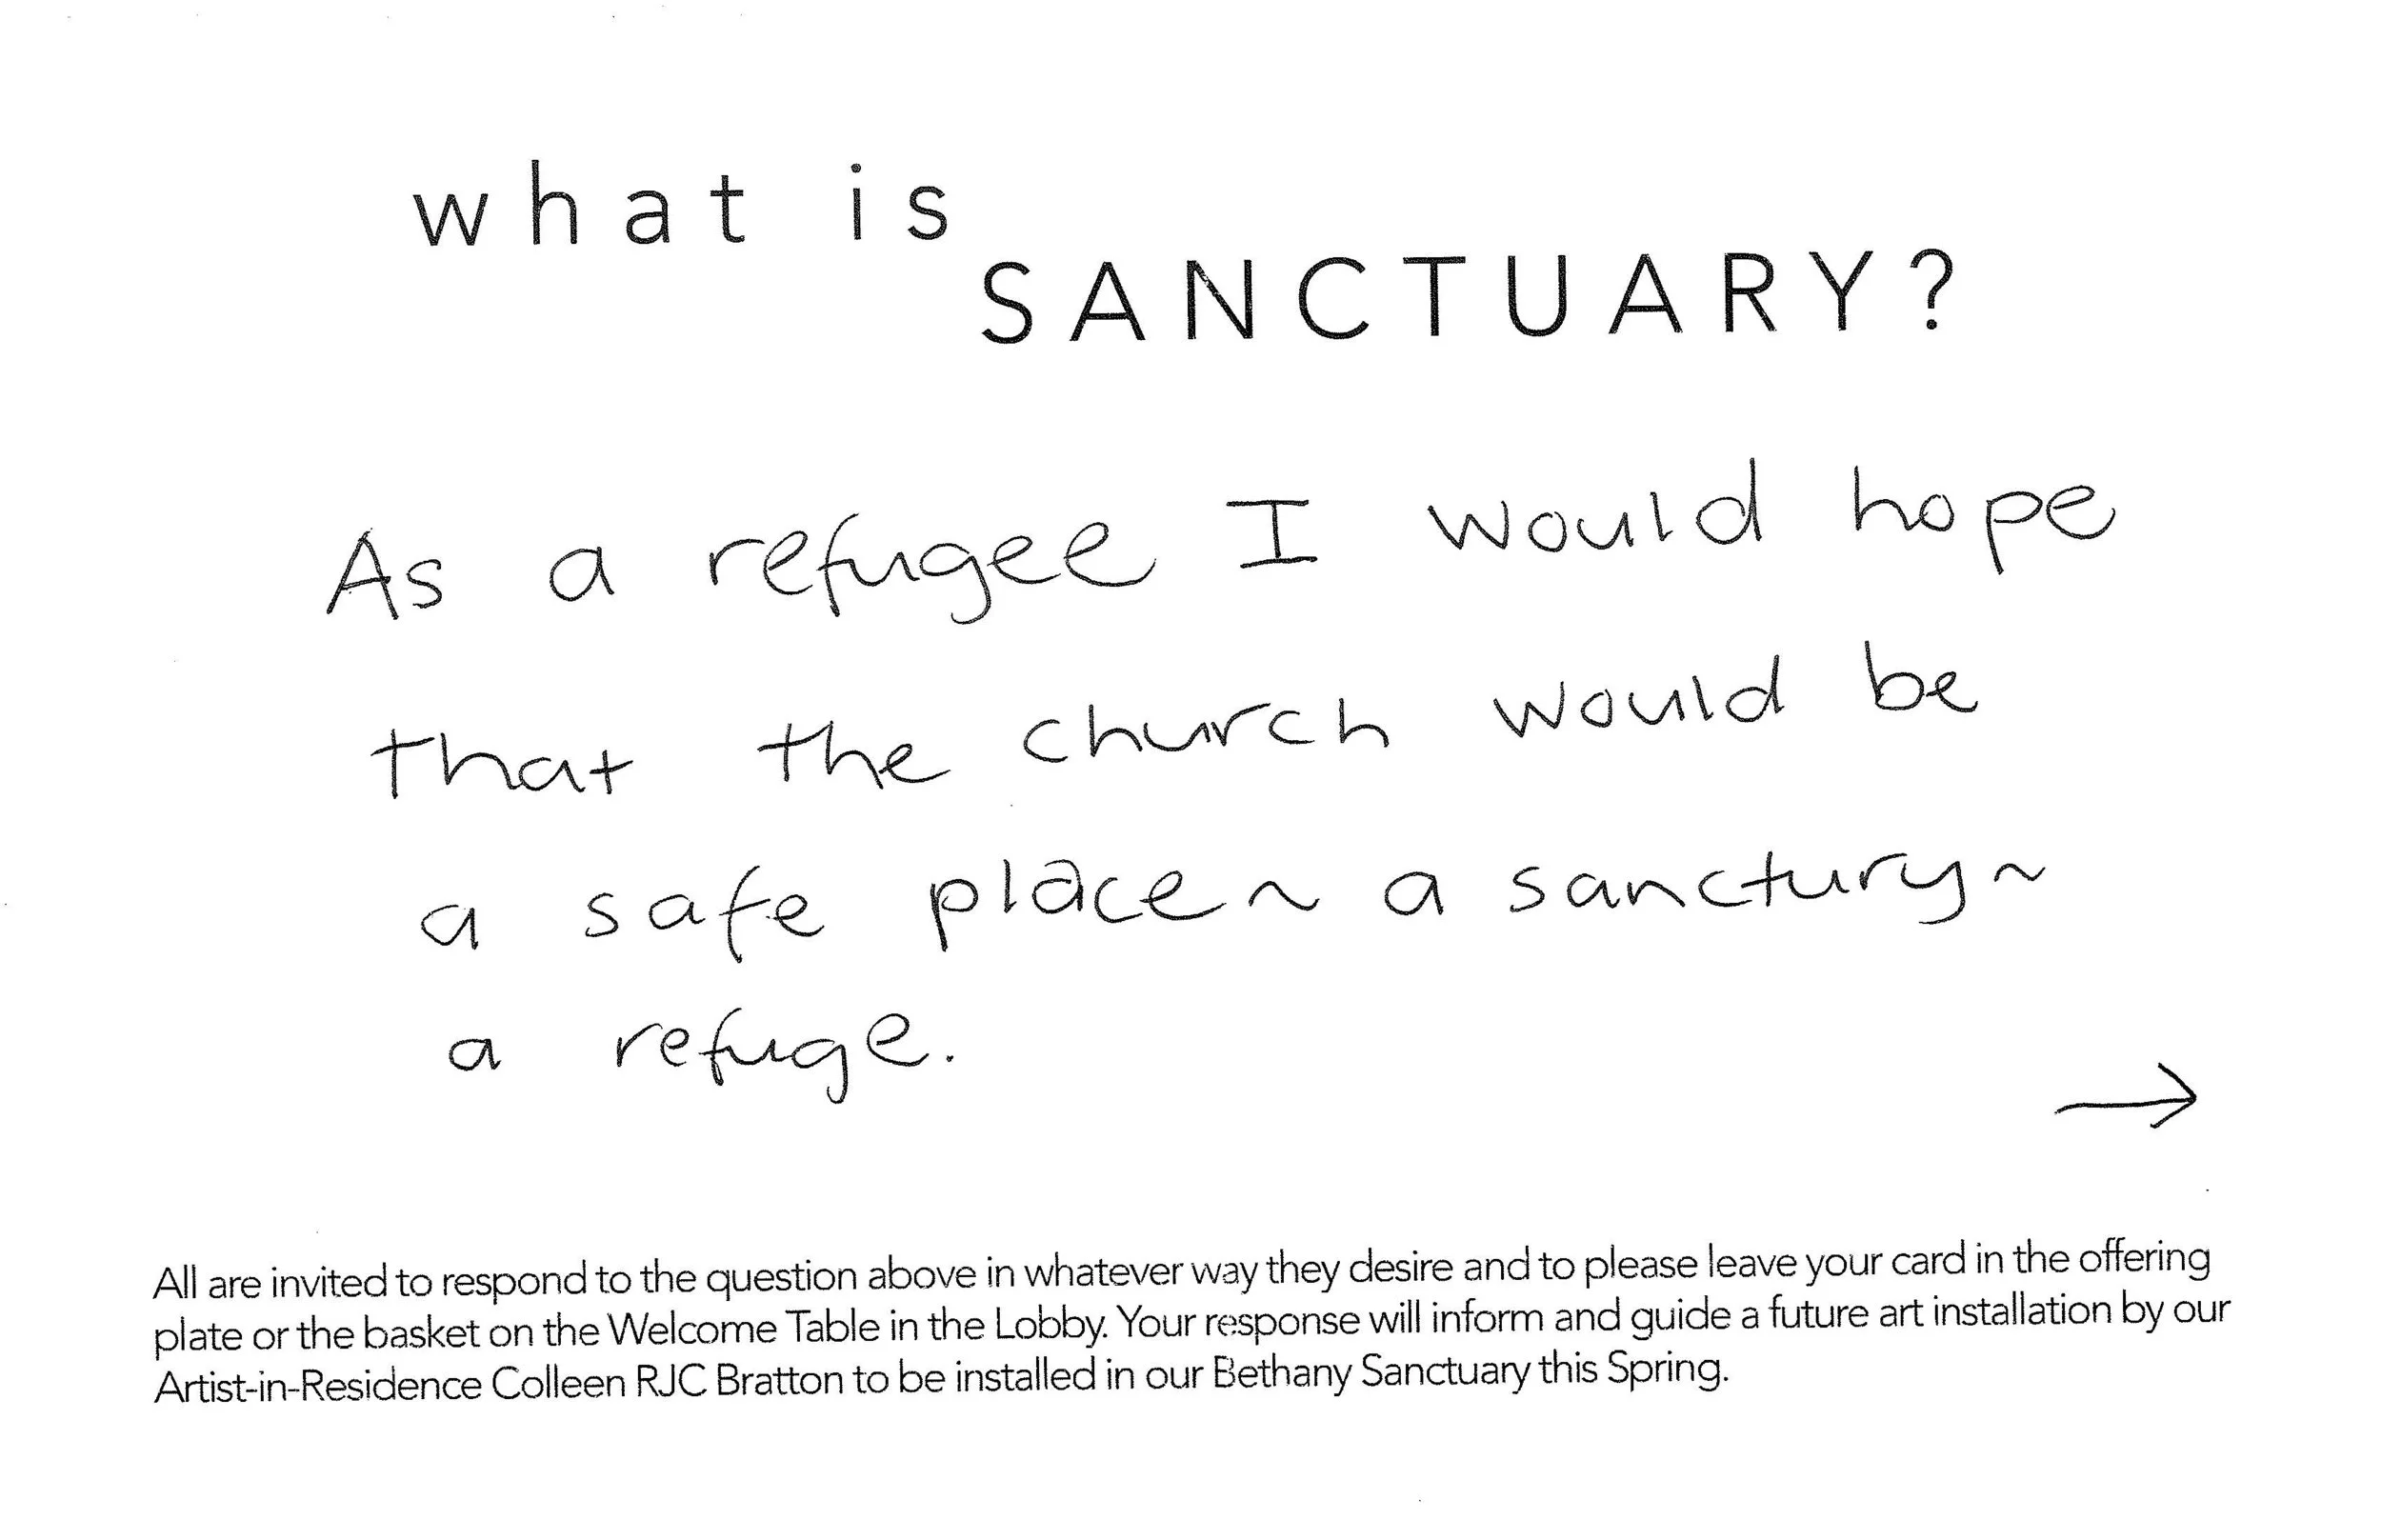 what is
SANCTUARY?
As a refugee I would hope
that the church would be
a safe place ~ a sanctury ~
a refuge.
→
All are invited to respond to the question above in whatever way they desire and to please leave your card in the offering
plate or the basket on the Welcome Table in the Lobby. Your response will inform and guide a future art installation by our
Artist-in-Residence Colleen RJC Bratton to be installed in our Bethany Sanctuary this Spring.